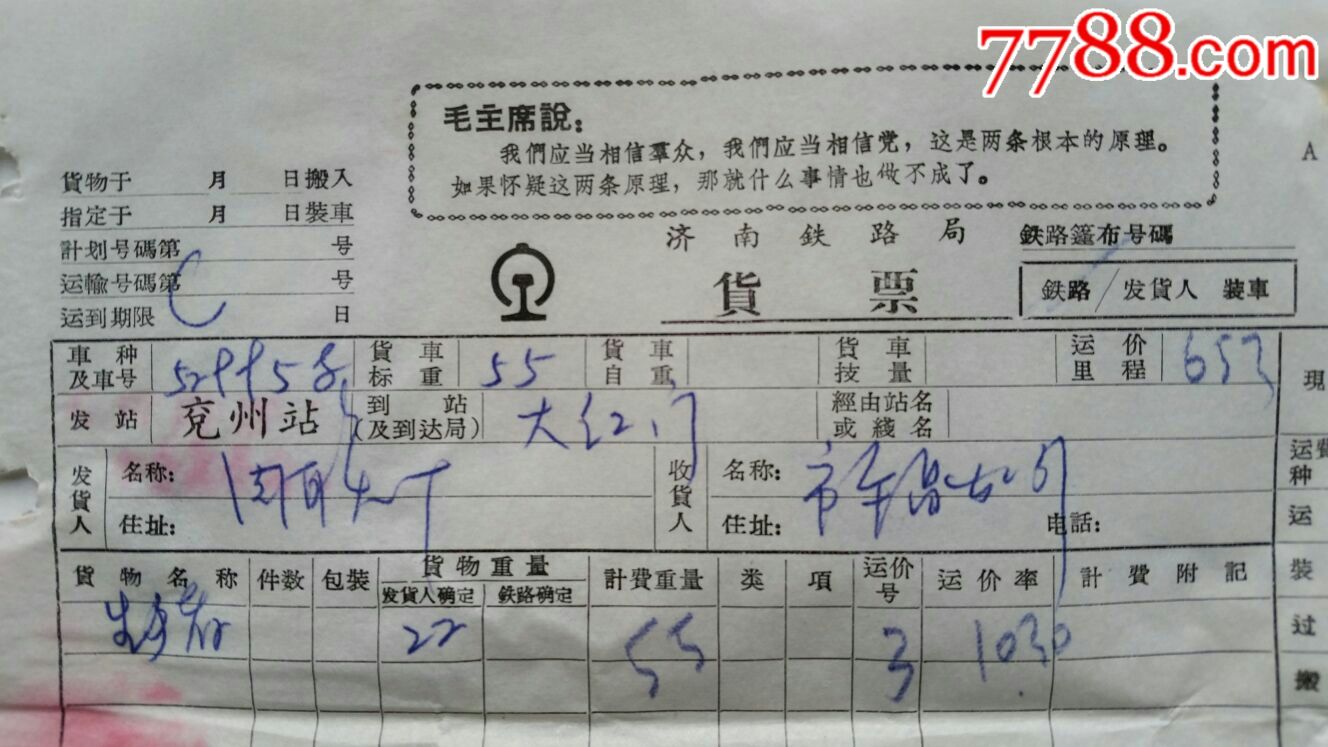 7788.com
毛主席說:
我們应当相信羣众，我們应当相信党，这是两条根本的原理。
如果怀疑这两条原理，那就什么事情也做不成了。
A
貨物于 月 日搬入
指定于 月 日裝車
計划号碼第 号
运輸号碼第 号
运到期限 日
济南鉄路局
貨票
鉄路篷布号碼
鉄路/发貨人 裝車
車种及車号 貨車标重 55 貨車自重 貨車技量 运价里程 653
現
发站 兖州站 到站(及到达局) 大红门 經由站名或綫名
发貨人 名称:
住址:
收貨人 名称:
住址: 电話:
运費
种
运
貨物名称 件数 包裝 貨物重量 計費重量 类 項 运价号 运价率 計費附記
发貨人确定 鉄路确定
裝
22 55 3 10.30
过
搬